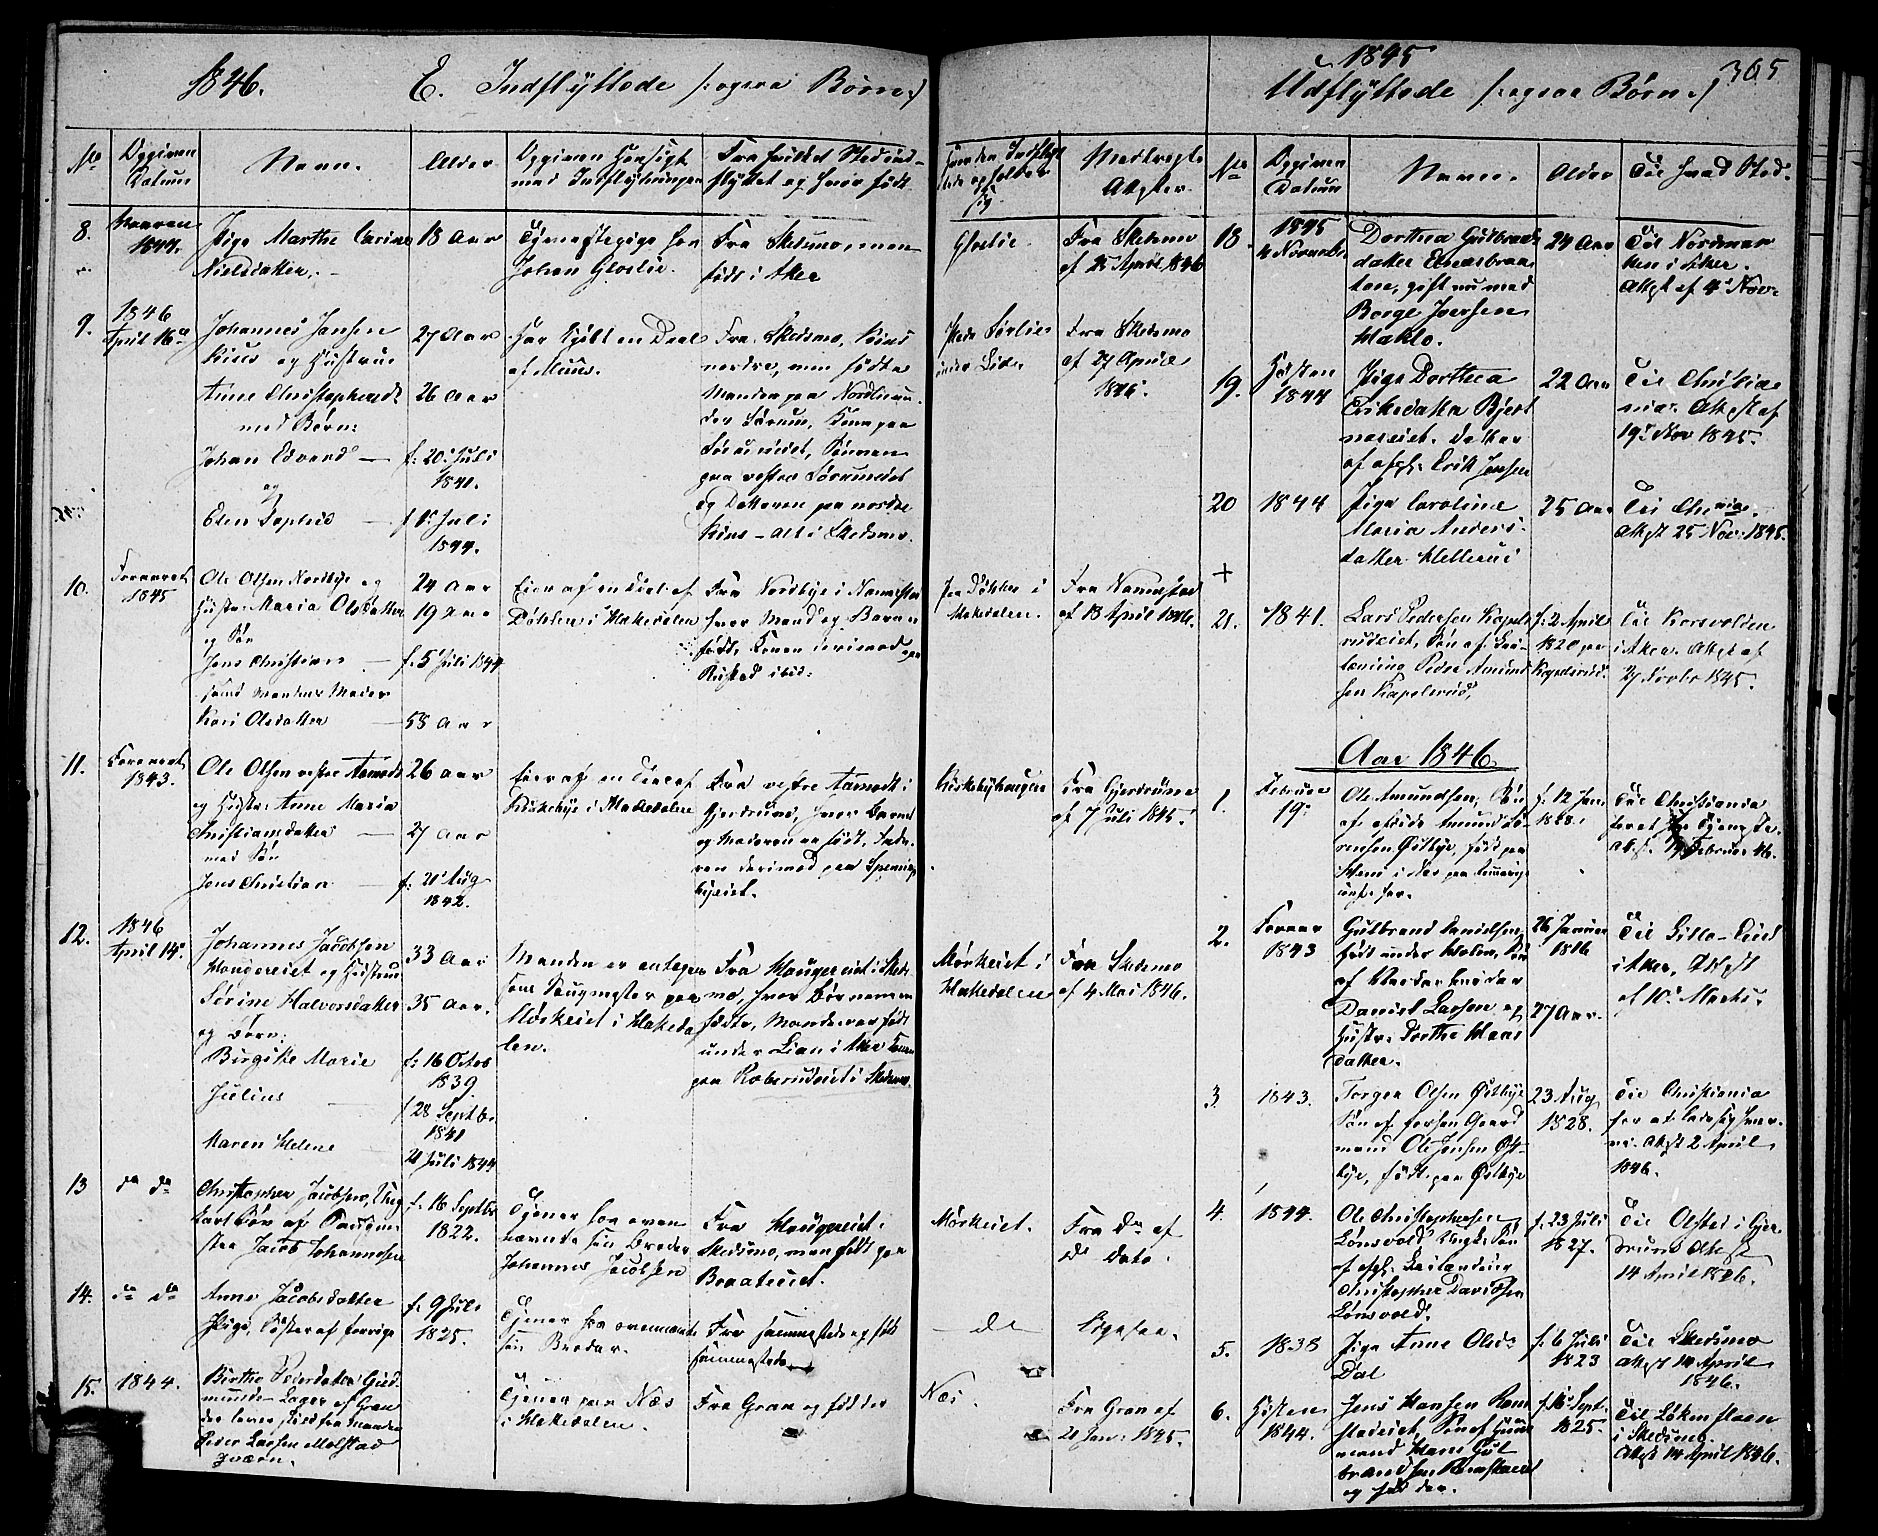 1846.
E. Indflyttede /: ogsaa Børn :/
No
Opgiven
Datum
Navn.
Alder
Opgiven Hensigt
med Indflytningen
Fra hvilket Sted ind-
flyttet og hvor født
Hvor den Indflyt
tede opholder
sig
Medbragt
Attester.
8.
Vaaren
1844.
Pige Marthe Carine
Nielsdatter.
18 Aar
Tjenestepige hos
Johan Gloslie.
Fra Skedsmo, men
født i Aker
Gloslie.
Fra Skedsmo
af 25 April 1846
9.
1846
April 16de
Johannes Jensen
og Hustrue
Anne Christophersdt
med Børn:
Johan Edvard
og
Elen Sophie
27 Aar
26 Aar
f: 20 Juli
1841.
f 1 Juli
1844.
har kjøbt en Deel
af Muus.
Fra Skedsmo,
nordre, men født
Manden paa Nordlie un
der Sørum, Konen paa
Sønnen
paa vestre
og Datteren paa nordre
alt i Skedsmo.
Sørlie
under
Fra Skedsmo
af 27 April
1846.
10.
Foraaret
1845
Ole Olsen Nordbye og
Hustr: Maria Olsdatter
og Søn
Jens Christian
samt Mandens Moder
Kari Olsdatter
24 Aar
19 Aar
f. 5 Juli 1844
58 Aar
Eier af en Deel af
Døhlen i Hakedalen
Fra Nordbye i Nannestad
hvor Mand og Barn er
født, Konen derimod paa
Rustad ibid:
Paa Døhlen i
Hakedalen.
Fra Nannestad
af 13 April 1846.
11.
Foraaret
1843.
Ole Olsen vestre Aamodt
og Hustr: Anne Maria
Christiansdatter
med Søn
Jens Christian
26 Aar
27 Aar
f: 21 Aug
1842.
Eier af en Deel af
Kirkebye i Hakedalen
Fra vestre Aamodt i
Gjerdrum, hvor Barnet
og Moderen er født, Fade-
ren derimod paa
Kirkebyhaugen
Fra Gjerdrum
af 7 Juli 1845.
12.
1846
April 14.
Johannes Jacobsen
Haugereiet og Hustrue
Sørine Halvorsdatter
og Børn:
Birgitte Marie
Julius
Maren Helene
33 Aar
35 Aar.
f: 16 Octob
1839
f 28 Septbr
1841
21 Juli 1844
Manden er antagen
som Saugmester paa
Mørkeiet i Hakeda
len.
Fra Haugereiet i Skeds
mo, hvor Børnene ere
fødte, Manden er født
under Lian i Aker Konen
paa Kaberudeiet i Skedsmo.
Mørkeiet i
Hakedalen
Fra Skedsmo
af 4 Mai 1846.
13
do do
Christopher Jacobsen, Ung
karl Søn af Saugme-
ster Jacob Johannesen
f. 16 Septbr
1822.
Tjener hos oven
nævnte sin Broder
Johannes Jacobsen
Fra Haugereiet i
Skedsmo, men født paa
Braateeiet.
Mørkeiet.
Fra do af
do Dato.
14.
do do
Anne Jacobsdatter
Pige, Søster af forrige
f. 9 Juli
1825.
Tjener hos ovennævnte
sin Broder.
Fra sammesteds og født
sammesteds
do
Ligesaa.
15.
1844.
Birthe Pedersdatter Gud
munds Lager af Gran
Peder Larsen Molstad
qværn.
Tjener paa Næs
i Hakedalen.
Fra Gran og født der
Næs.
Fra Gran af
21 Jan: 1845.
1845
Udflyttede /: ogsaa Børn :/
365
No
Opgiven
Datum
Navn.
Alder
Til hvad Sted.
18.
1845
4 Novembr
Dorthea Gulbrands
datter
gift nu med
Borge Iversen
Haklo.
24 Aar
Til Nordmar
ken i Aker.
Attest af 4 Nov:
19.
Høsten
1844
Pige Dorthea
Eriksdatter Bjert
næseiet. Datter
af afg: Erik Jensen
22 Aar
Til Christia
nia. Attest af
19 Nov 1845.
20
1844
Pige Caroline
Maria Anders-
datter Hellerud
25 Aar
Til Chrania.
Attest 25 Nov: 1845.
+
21.
1841.
Lars Pedersen Kapels
rudeiet, Søn af Lei-
lænding Peder Amund
sen Kapelsrud.
f: 2 April
1820 paa
Kapelsrud.
Til Korsvolden
i Aker. Attest af
27 1845.
Aar 1846
1.
Februar
19
Ole Amundsen, Søn
af afdøde Amund Sø-
rensen Østbye, født paa
f. 12 Jan:
1828.
Til Christiania
Attest 19 Februar 46.
2.
Foraar
1843
Gulbrand Danielsen
født under Holm, Søn
af
Daniel Larsen og
Hustr: Dorthe Hans
datter.
26 Januar
1816
27 Aar.
Til Lille-
i Aker, Attest
af 10 Marts.
3.
1843.
Torger Olsen Østbye
Søn af forhen Gaard
mand Ole Jensen Øst-
bye, født paa Østbye
23 Aug
1828.
Til Christiania
for at
Attest 2 April
1846.
4.
1844.
Ole Christophersen
Lønsvold Ungk: Søn
af afg: Leilænding
Christopher Davidsen
Lønsvold.
f. 23 Juli
1827.
Til Olstad i Gjer
drum Attest
14 April 1846.
5.
1838
Pige Anne Olsdr
Dal
f: 6 Juli
1823
Til Skedsmo
Attest 14 April
1846.
6.
Høsten
1844.
Jens Hansen Ram
stadeiet, Søn af Huus
mand Hans Gul
brandsen Ramstadeiet
og født der.
f. 16 Sept.
1825.
Til Løkenstøen
i Skedsmo.
Attest 14 April 1846.